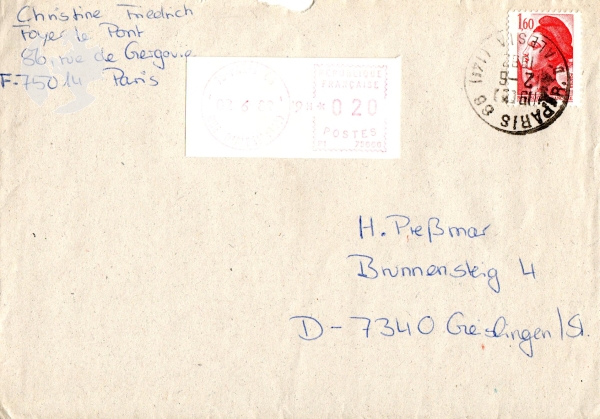 Christine Friedrich
Foyer le Pont
86, rue de Gergovie
F-75014 Paris
REPUBLIQUE
FRANCAISE
0 20
POSTES
1,60
PARIS 66
H. Preßmar
Brunnensteig 4
D - 7340 Geislingen/St.